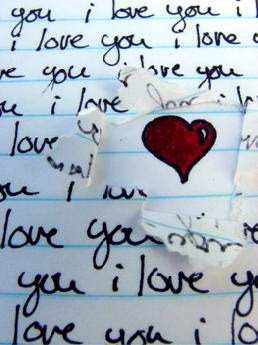 you i love you i l
i love you i love y
ve you i love you
you i lo
love
you i lov
love you
you i love
love you i lo